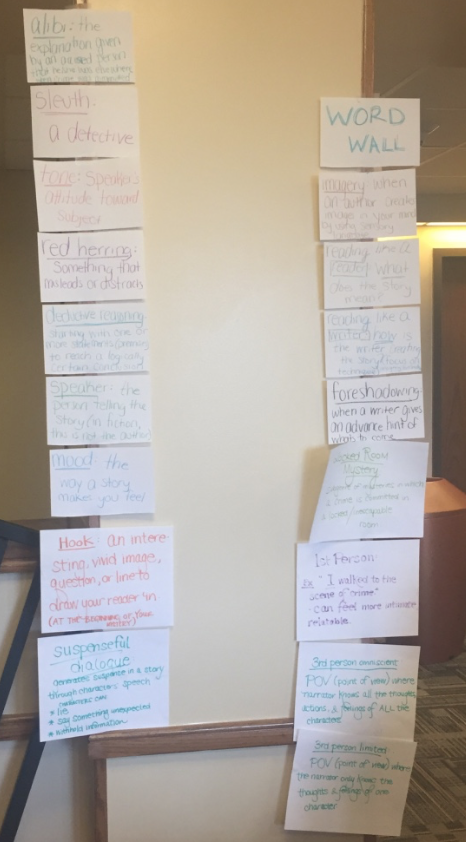 alibi: the
explanation given
by an accused person
sleuth:
a detective
tone: speaker's
attitude toward
subject
red herring:
something that
misleads or distracts
deductive reasoning
starting with one or
more statements (premises)
to reach a logically
certain conclusion
Speaker: the
person telling the
story (in fiction,
this is not the author)
mood: the
way a story
makes you feel
Hook: an intere-
sting, vivid image,
question, or line to
draw your reader in
(AT THE BEGINNING OF YOUR
suspenseful
dialogue
generates suspense in a story
through characters speech
* lie
* say something unexpected
* withhold information
WORD
WALL
imagery when
an author creates
images in your mind
by using sensory
language
reading like a
reader what
does the story
mean?
reading like a
writer how is
the writer
foreshadowing
when a writer gives
an advance hint of
what's to come
Locked Room
Mystery
room
1st Person:
Ex "I walked to the
scene of crime"
- can feel more intimate
relatable
3rd person omniscient
POV (point of view) where
narrator knows all the thoughts,
actions, & feelings of ALL the
characters
3rd person limited:
POV (point of view) where
the narrator only knows the
thoughts & feelings of one
character